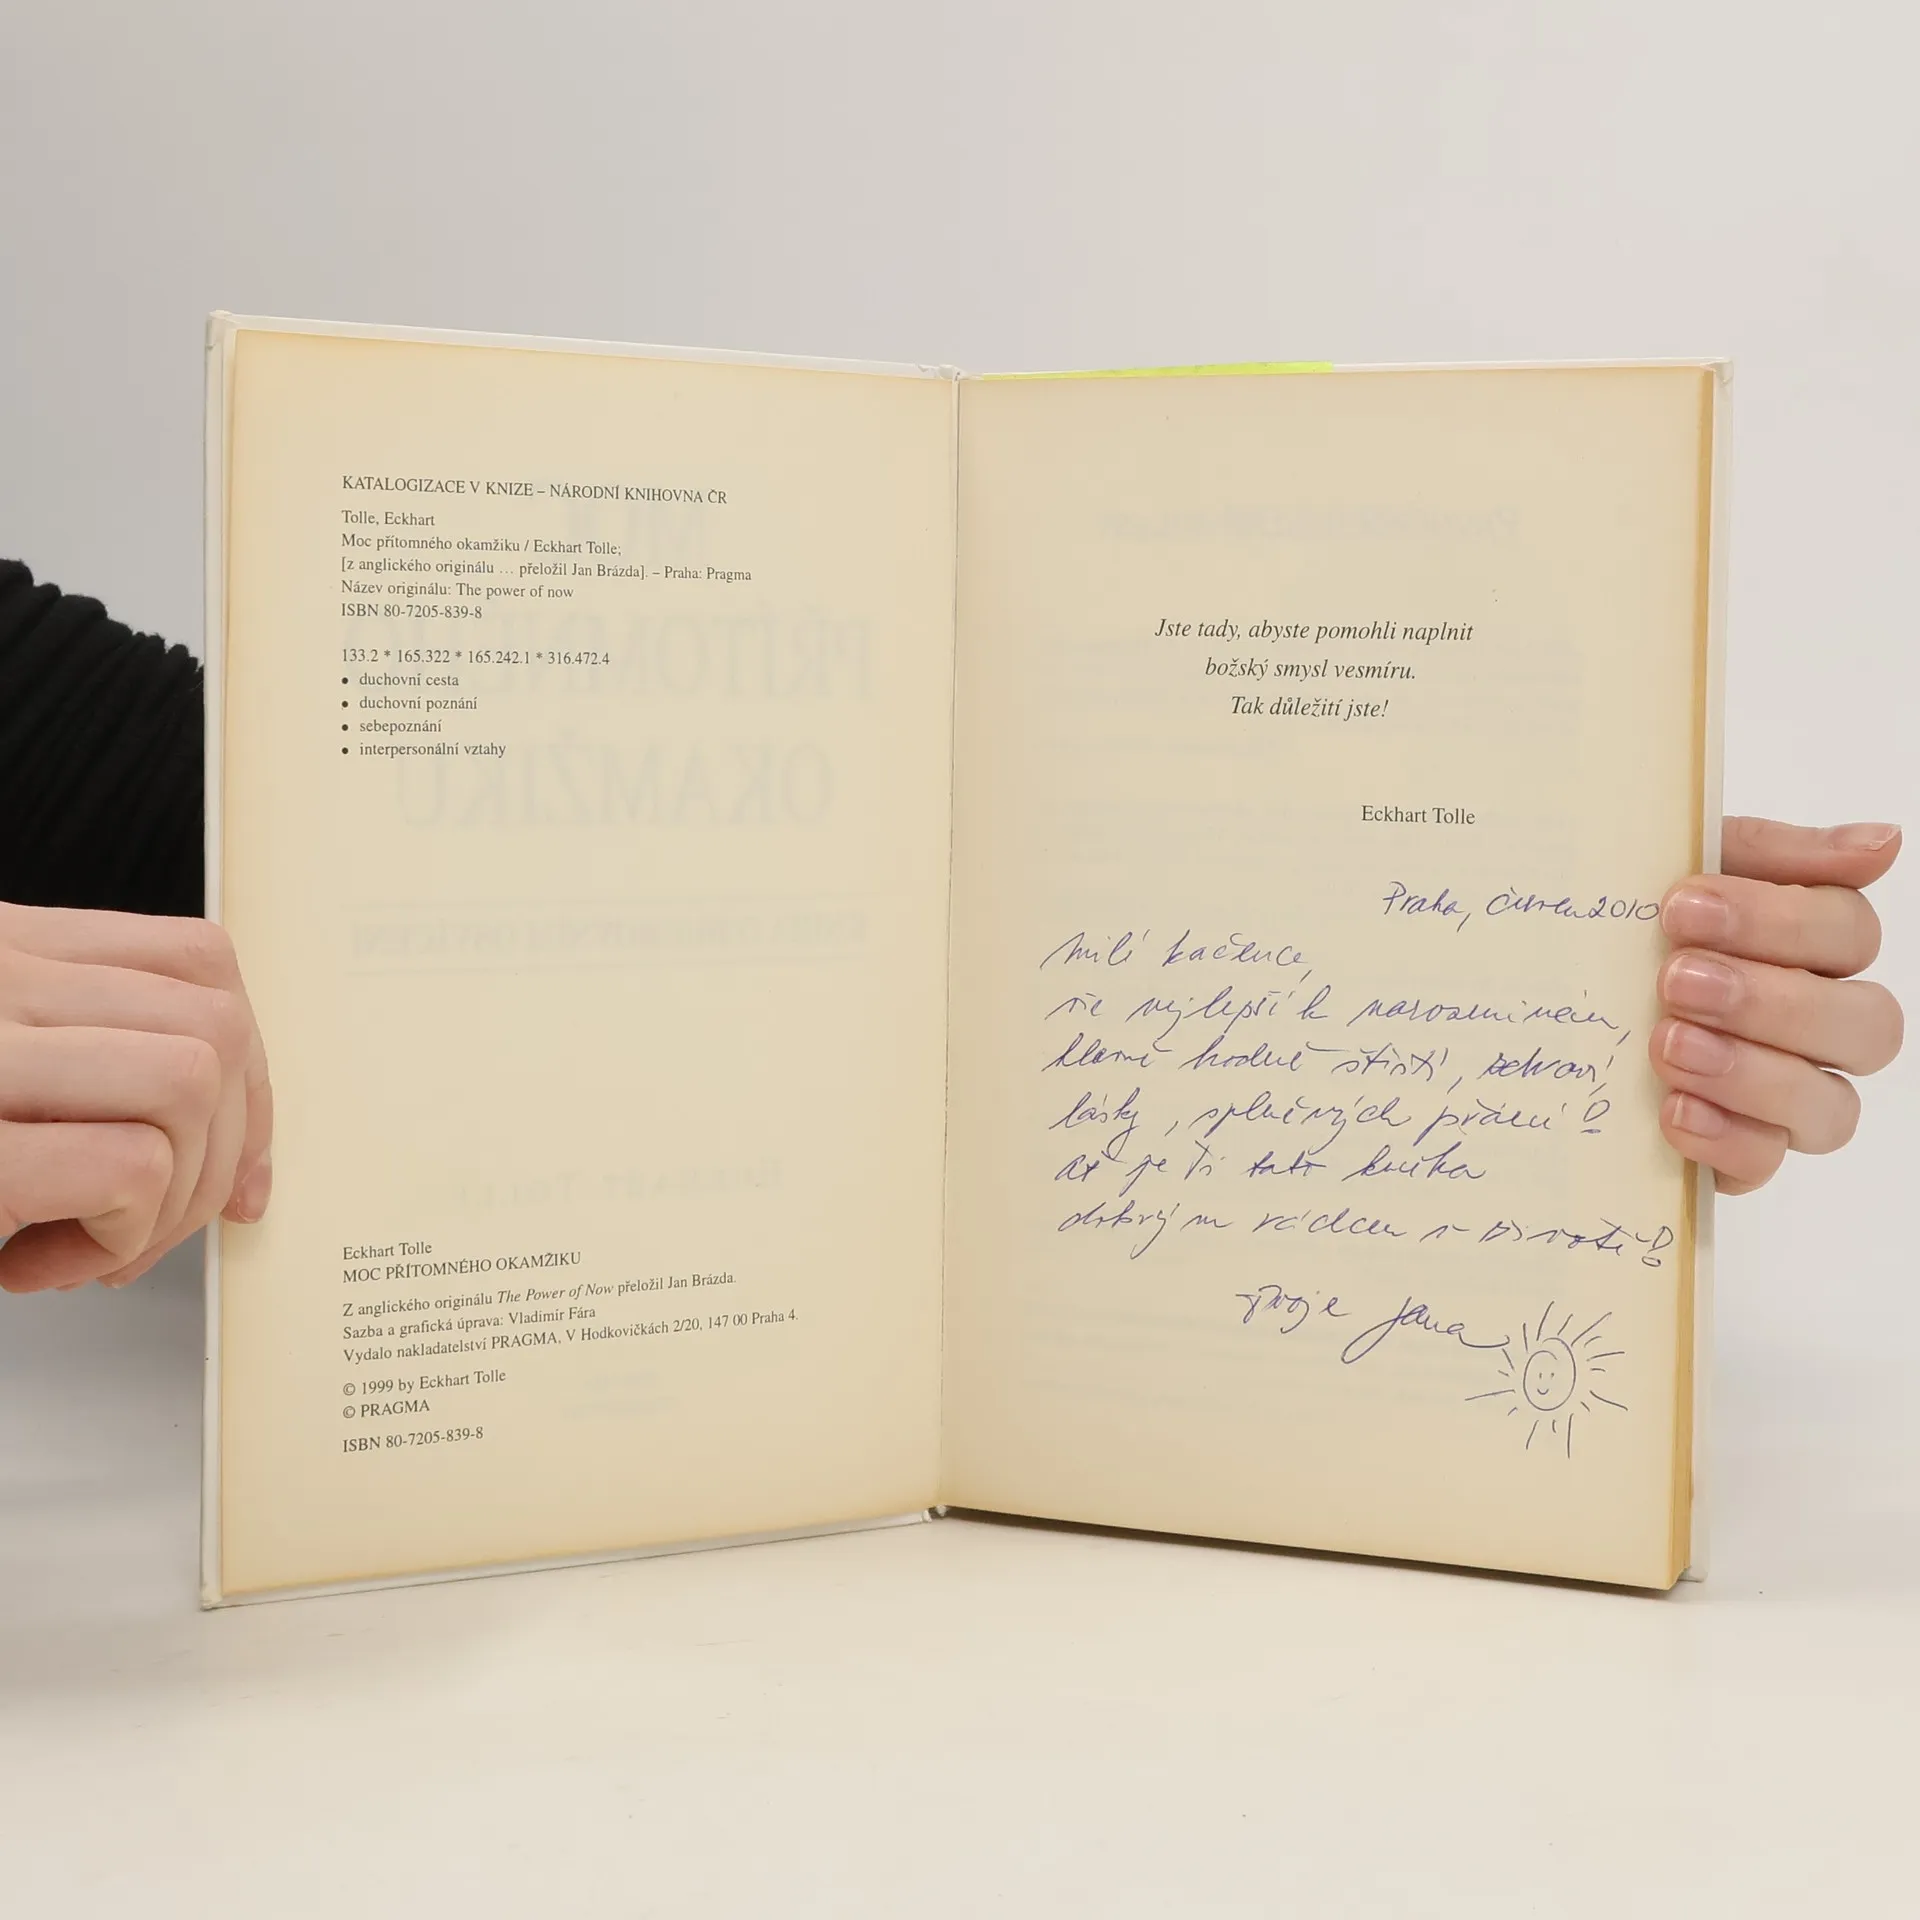 KATALOGIZACE V KNIZE – NÁRODNÍ KNIHOVNA ČR
Tolle, Eckhart
Moc přítomného okamžiku / Eckhart Tolle;
[z anglického originálu ... přeložil Jan Brázda]. – Praha: Pragma
Název originálu: The power of now
ISBN 80-7205-839-8
133.2 * 165.322 * 165.242.1 * 316.472.4
• duchovní cesta
• duchovní poznání
• sebepoznání
• interpersonální vztahy
Eckhart Tolle
MOC PŘÍTOMNÉHO OKAMŽIKU
Z anglického originálu The Power of Now přeložil Jan Brázda.
Sazba a grafická úprava: Vladimír Fára
Vydalo nakladatelství PRAGMA, V Hodkovičkách 2/20, 147 00 Praha 4.
© 1999 by Eckhart Tolle
© PRAGMA
ISBN 80-7205-839-8
Jste tady, abyste pomohli naplnit
božský smysl vesmíru.
Tak důležití jste!
Eckhart Tolle
Praha, červen 2010
Milé Kačence,
vše nejlepší k narozeninám,
hlavně hodně štěstí, zdraví,
lásky, splněných přání!
Ať je Ti tato kniha
dobrým rádcem v životě!
Tvoje Jana